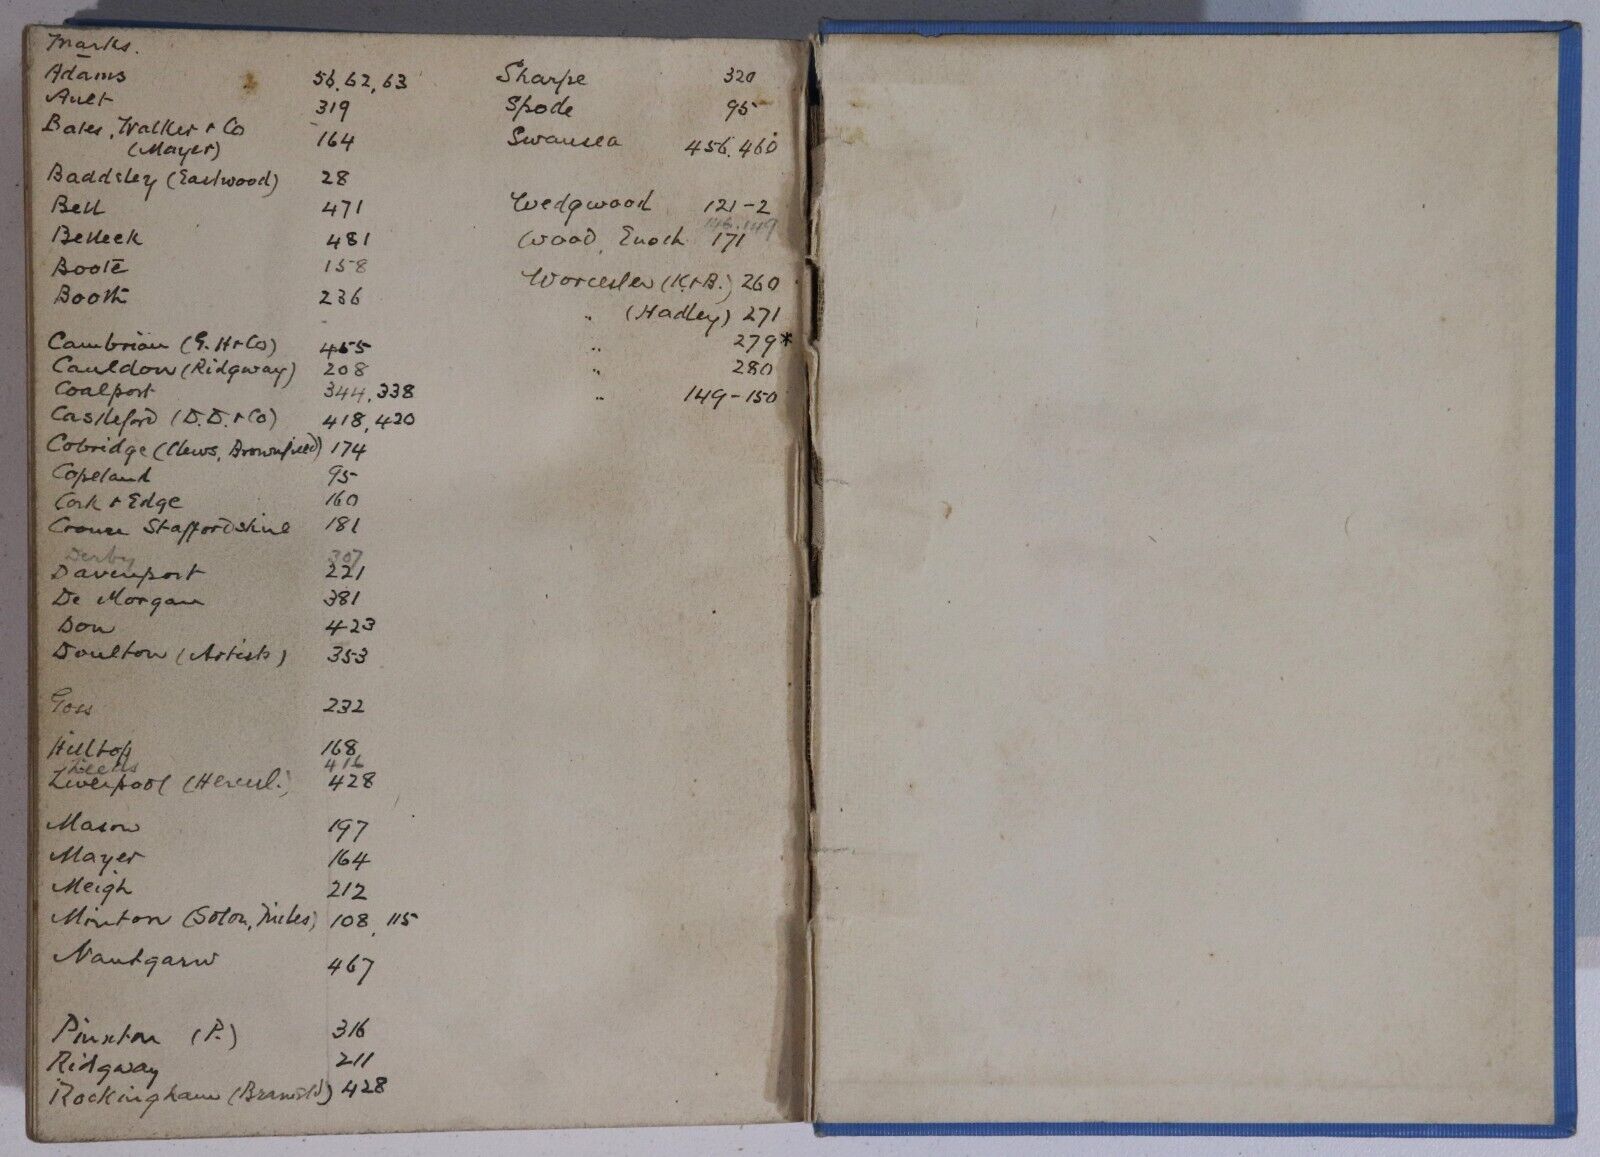 Marks.
Adams 56, 62, 63
Ault 319
Bates, Walker & Co
(Mayer) 164
Baddeley (Eastwood) 28
Bell 471
Belleek 481
Boote 158
Booth 236
Cambrian (G. H & Co) 455
Cauldon (Ridgway) 208
Coalport 344, 338
Castleford (D. D. & Co) 418, 420
Cobridge (Clews, Brownfield) 174
Copeland 95
Cork & Edge 160
Crown Staffordshire 181
Derby 307
Davenport 221
De Morgan 381
Don 423
Doulton (Artists) 353
Goss 232
Hilltop 168
Leeds 416
Liverpool (Hercul.) 428
Mason 197
Mayer 164
Meigh 212
Minton (Solon, Tiles) 108, 115
Nantgarw 467
Pinxton (P.) 316
Ridgway 211
Rockingham (Brameld) 428
Sharpe 320
Spode 95
Swansea 456, 460
Wedgwood 121-2
146.149
Wood, Enoch 171
Worcester (K & B.) 260
" (Hadley) 271
" 279*
" 280
" 149-150